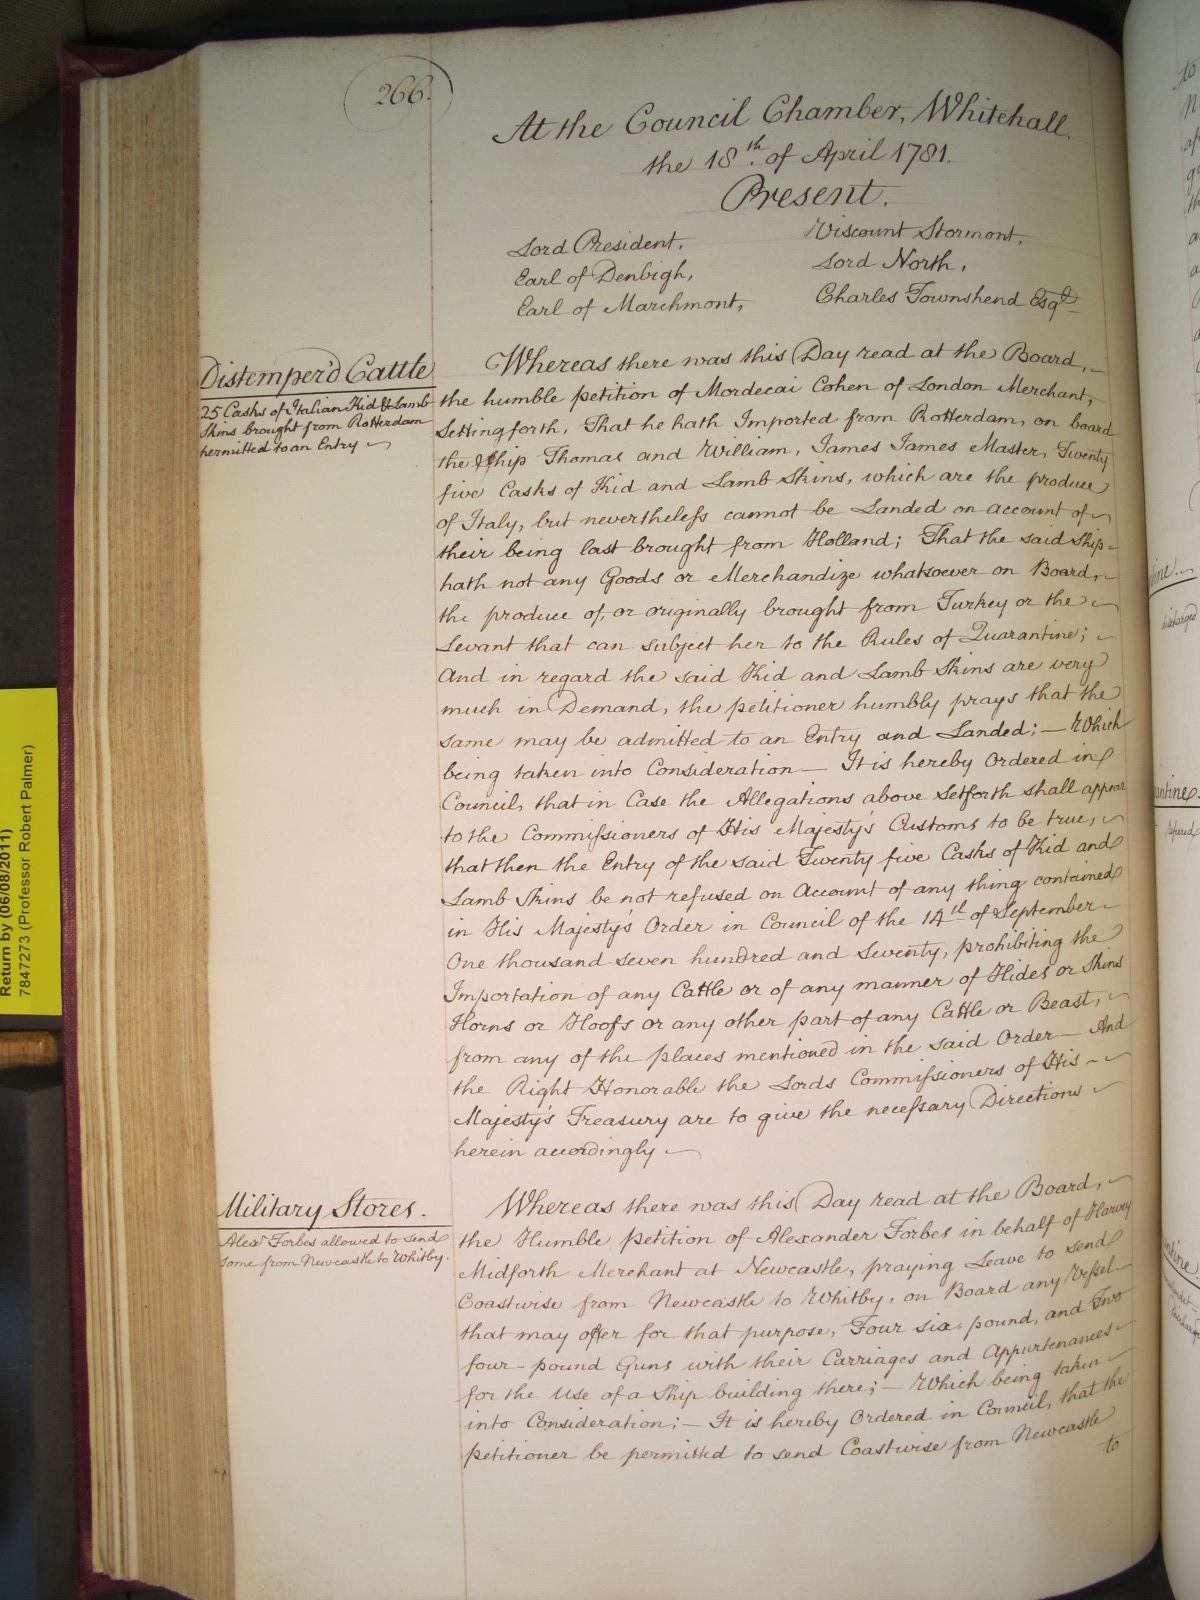 266.
At the Council Chamber, Whitehall.
the 18th. of April 1781.
Present.
Lord President,
Earl of Denbigh,
Earl of Marchmont,
Viscount Stormont,
Lord North,
Charles Townshend Esqr.
Distemper'd Cattle
25 Casks of Italian Kid & Lamb
Skins brought from Rotterdam
permitted to an Entry
Whereas there was this Day read at the Board,
the humble petition of Mordecai Cohen of London Merchant,
Setting forth, That he hath Imported from Rotterdam, on board
the Ship Thomas and William, James James Master, Twenty
five Casks of Kid and Lamb Skins, which are the produce
of Italy, but nevertheless cannot be Landed on account of
their being last brought from Holland; That the said Ship
hath not any Goods or Merchandize whatsoever on Board,
the produce of, or originally brought from Turkey or the
Levant that can subject her to the Rules of Quarantine;
And in regard the said Kid and Lamb Skins are very
much in Demand, the petitioner humbly prays that the
same may be admitted to an Entry and Landed; — Which
being taken into Consideration — It is hereby Ordered in
Council, that in Case the Allegations above Setforth shall appear
to the Commissioners of His Majesty's Customs to be true,
that then the Entry of the said Twenty five Casks of Kid and
Lamb Skins be not refused on Account of any thing contained
in His Majesty's Order in Council of the 14th of September
One thousand seven hundred and Seventy, prohibiting the
Importation of any Cattle or of any manner of Hides or Skins
Horns or Hoofs or any other part of any Cattle or Beast,
from any of the places mentioned in the said Order — And
the Right Honorable the Lords Commissioners of His
Majesty's Treasury are to give the necessary Directions
herein accordingly
Military Stores.
Alexr. Forbes allowed to send
some from Newcastle to Whitby.
Whereas there was this Day read at the Board,
the Humble petition of Alexander Forbes in behalf of Harvey
Midforth Merchant at Newcastle, praying Leave to send
Coastwise from Newcastle to Whitby, on Board any Vessel
that may offer for that purpose, Four six-pound, and Two
four-pound Guns with their Carriages and Appurtenances
for the Use of a Ship building there; — Which being taken
into Consideration; — It is hereby Ordered in Council, that the
petitioner be permitted to send Coastwise from Newcastle
to
Return by (06/08/2011)
7847273 (Professor Robert Palmer)